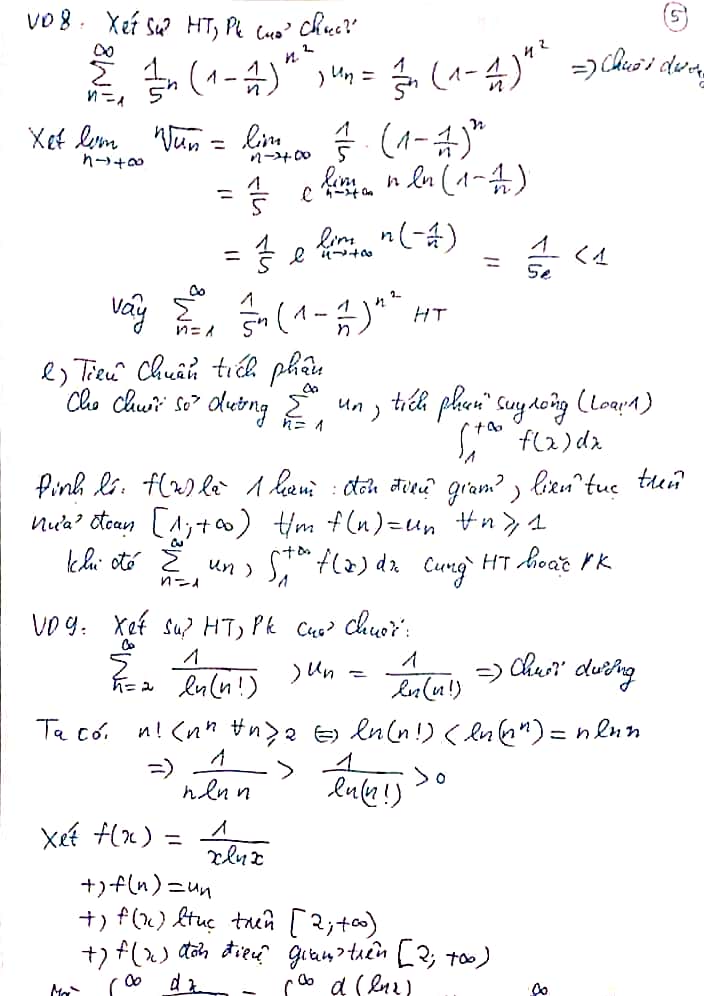 5
VD8. Xét sự HT, PK của chuỗi
∑_{n=1}^{∞} 1/5^n (1 - 1/n)^{n^2}, u_n = 1/5^n (1 - 1/n)^{n^2} => Chuỗi dương
Xét lim_{n→+∞} ⁿ√u_n = lim_{n→+∞} 1/5 . (1 - 1/n)^n
= 1/5 e^{lim_{n→+∞} n ln(1 - 1/n)}
= 1/5 e^{lim_{n→+∞} n(-1/n)} = 1/5e < 1
Vậy ∑_{n=1}^{∞} 1/5^n (1 - 1/n)^{n^2} HT
e) Tiêu chuẩn tích phân
Cho chuỗi số dương ∑_{n=1}^{∞} u_n, tích phân suy rộng (Loại 1)
∫_1^{+∞} f(x)dx
Định lí. f(x) là 1 hàm : đơn điệu giảm, liên tục trên
nửa đoạn [1; +∞) t/m f(n) = u_n ∀n ⩾ 1
Khi đó ∑_{n=1}^{∞} u_n, ∫_1^{+∞} f(x) dx cùng HT hoặc PK
VD9. Xét sự HT, PK của chuỗi:
∑_{n=2}^{∞} 1/ln(n!), u_n = 1/ln(n!) => Chuỗi dương
Ta có. n! < n^n ∀n ⩾ 2 ⇔ ln(n!) < ln(n^n) = n ln n
=> 1/(n ln n) > 1/ln(n!) > 0
Xét f(x) = 1/(x ln x)
+, f(n) = u_n
+, f(x) ltục trên [2; +∞)
+, f(x) đơn điệu giảm trên [2; +∞)
∫^∞ dx = ∫^∞ d(lnx) ∞